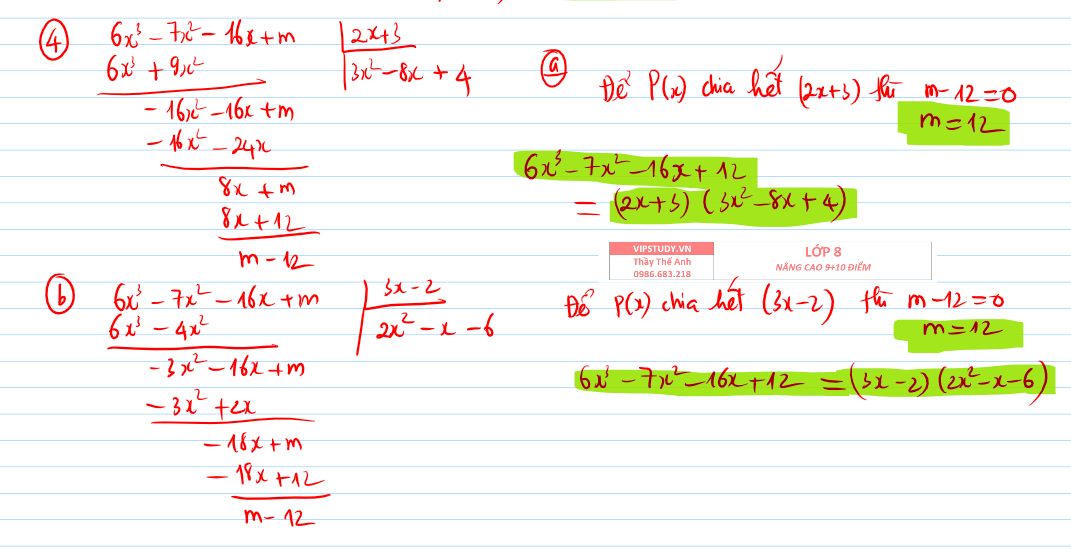 ④ 6x³ - 7x² - 16x + m | 2x+3
6x³ + 9x² | 3x² - 8x + 4
- 16x² - 16x + m
- 16x² - 24x
8x + m
8x + 12
m - 12
ⓐ Để P(x) chia hết (2x+3) thì m - 12 = 0
m = 12
6x³ - 7x² - 16x + 12
= (2x+3) (3x² - 8x + 4)
VIPSTUDY.VN
Thầy Thế Anh
0986.683.218
LỚP 8
NÂNG CAO 9+10 ĐIỂM
ⓑ 6x³ - 7x² - 16x + m | 3x - 2
6x³ - 4x² | 2x² - x - 6
- 3x² - 16x + m
- 3x² + 2x
- 18x + m
- 18x + 12
m - 12
Để P(x) chia hết (3x-2) thì m - 12 = 0
m = 12
6x³ - 7x² - 16x + 12 = (3x - 2) (2x² - x - 6)